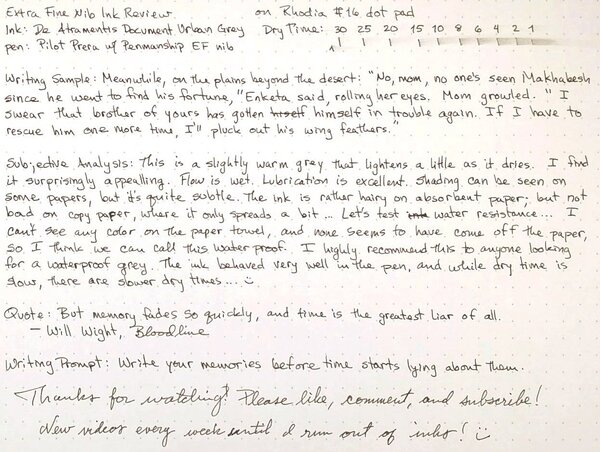 Extra Fine Nib Ink Review on Rhodia #16 dot pad
Ink: De Atramentis Document Urban Grey Dry Time: 30 25 20 15 10 8 6 4 2 1
pen: Pilot Prera w/ Penmanship EF nib
Writing Sample: Meanwhile, on the plains beyond the desert: "No, mom, no one's seen Makhabesh
since he went to find his fortune," Enketa said, rolling her eyes. Mom growled. "I
swear that brother of yours has gotten himself in trouble again. If I have to
rescue him one more time, I'll pluck out his wing feathers."
Subjective Analysis: This is a slightly warm grey that lightens a little as it dries. I find
it surprisingly appealling. Flow is wet. Lubrication is excellent. Shading can be seen on
some papers, but it's quite subtle. The ink is rather hairy on absorbent paper; but not
bad on copy paper, where it only spreads a bit... Let's test ink water resistance... I
can't see any color on the paper towel, and none seems to have come off the paper,
so I think we can call this waterproof. I highly recommend this to anyone looking
for a waterproof grey. The ink behaved very well in the pen, and while dry time is
slow, there are slower dry times...
Quote: But memory fades so quickly, and time is the greatest liar of all.
- Will Wight, Bloodline
Writing Prompt: Write your memories before time starts lying about them.
Thanks for watching! Please like, comment, and subscribe!
New videos every week until I run out of inks!